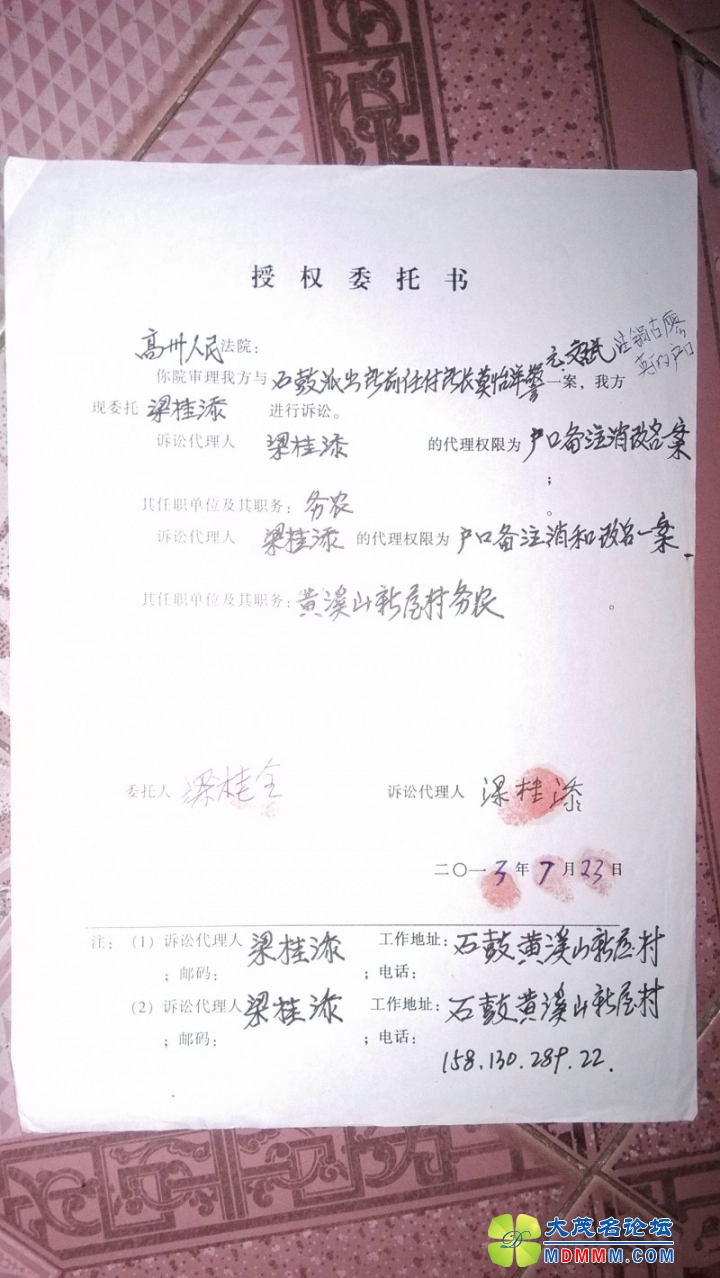 授权委托书
高州人民法院：
你院审理我方与石鼓派出所前任付所长莫怡洋警一案，我方
现委托 梁桂漆 进行诉讼。
诉讼代理人 梁桂漆 的代理权限为 户口备注消改名一案
；
其任职单位及其职务：务农 。
诉讼代理人 梁桂漆 的代理权限为 户口备注消和改名一案
其任职单位及其职务：黄溪山新屋村务农 。
委托人 梁桂全 诉讼代理人 梁桂漆
二〇一3年7月23日
注：（1）诉讼代理人 梁桂漆 工作地址：石鼓黄溪山新屋村
；邮码： ；电话：
（2）诉讼代理人 梁桂漆 工作地址：石鼓黄溪山新屋村
；邮码： ；电话：
158.130.289.22.
大茂名论坛
MDMMM.COM